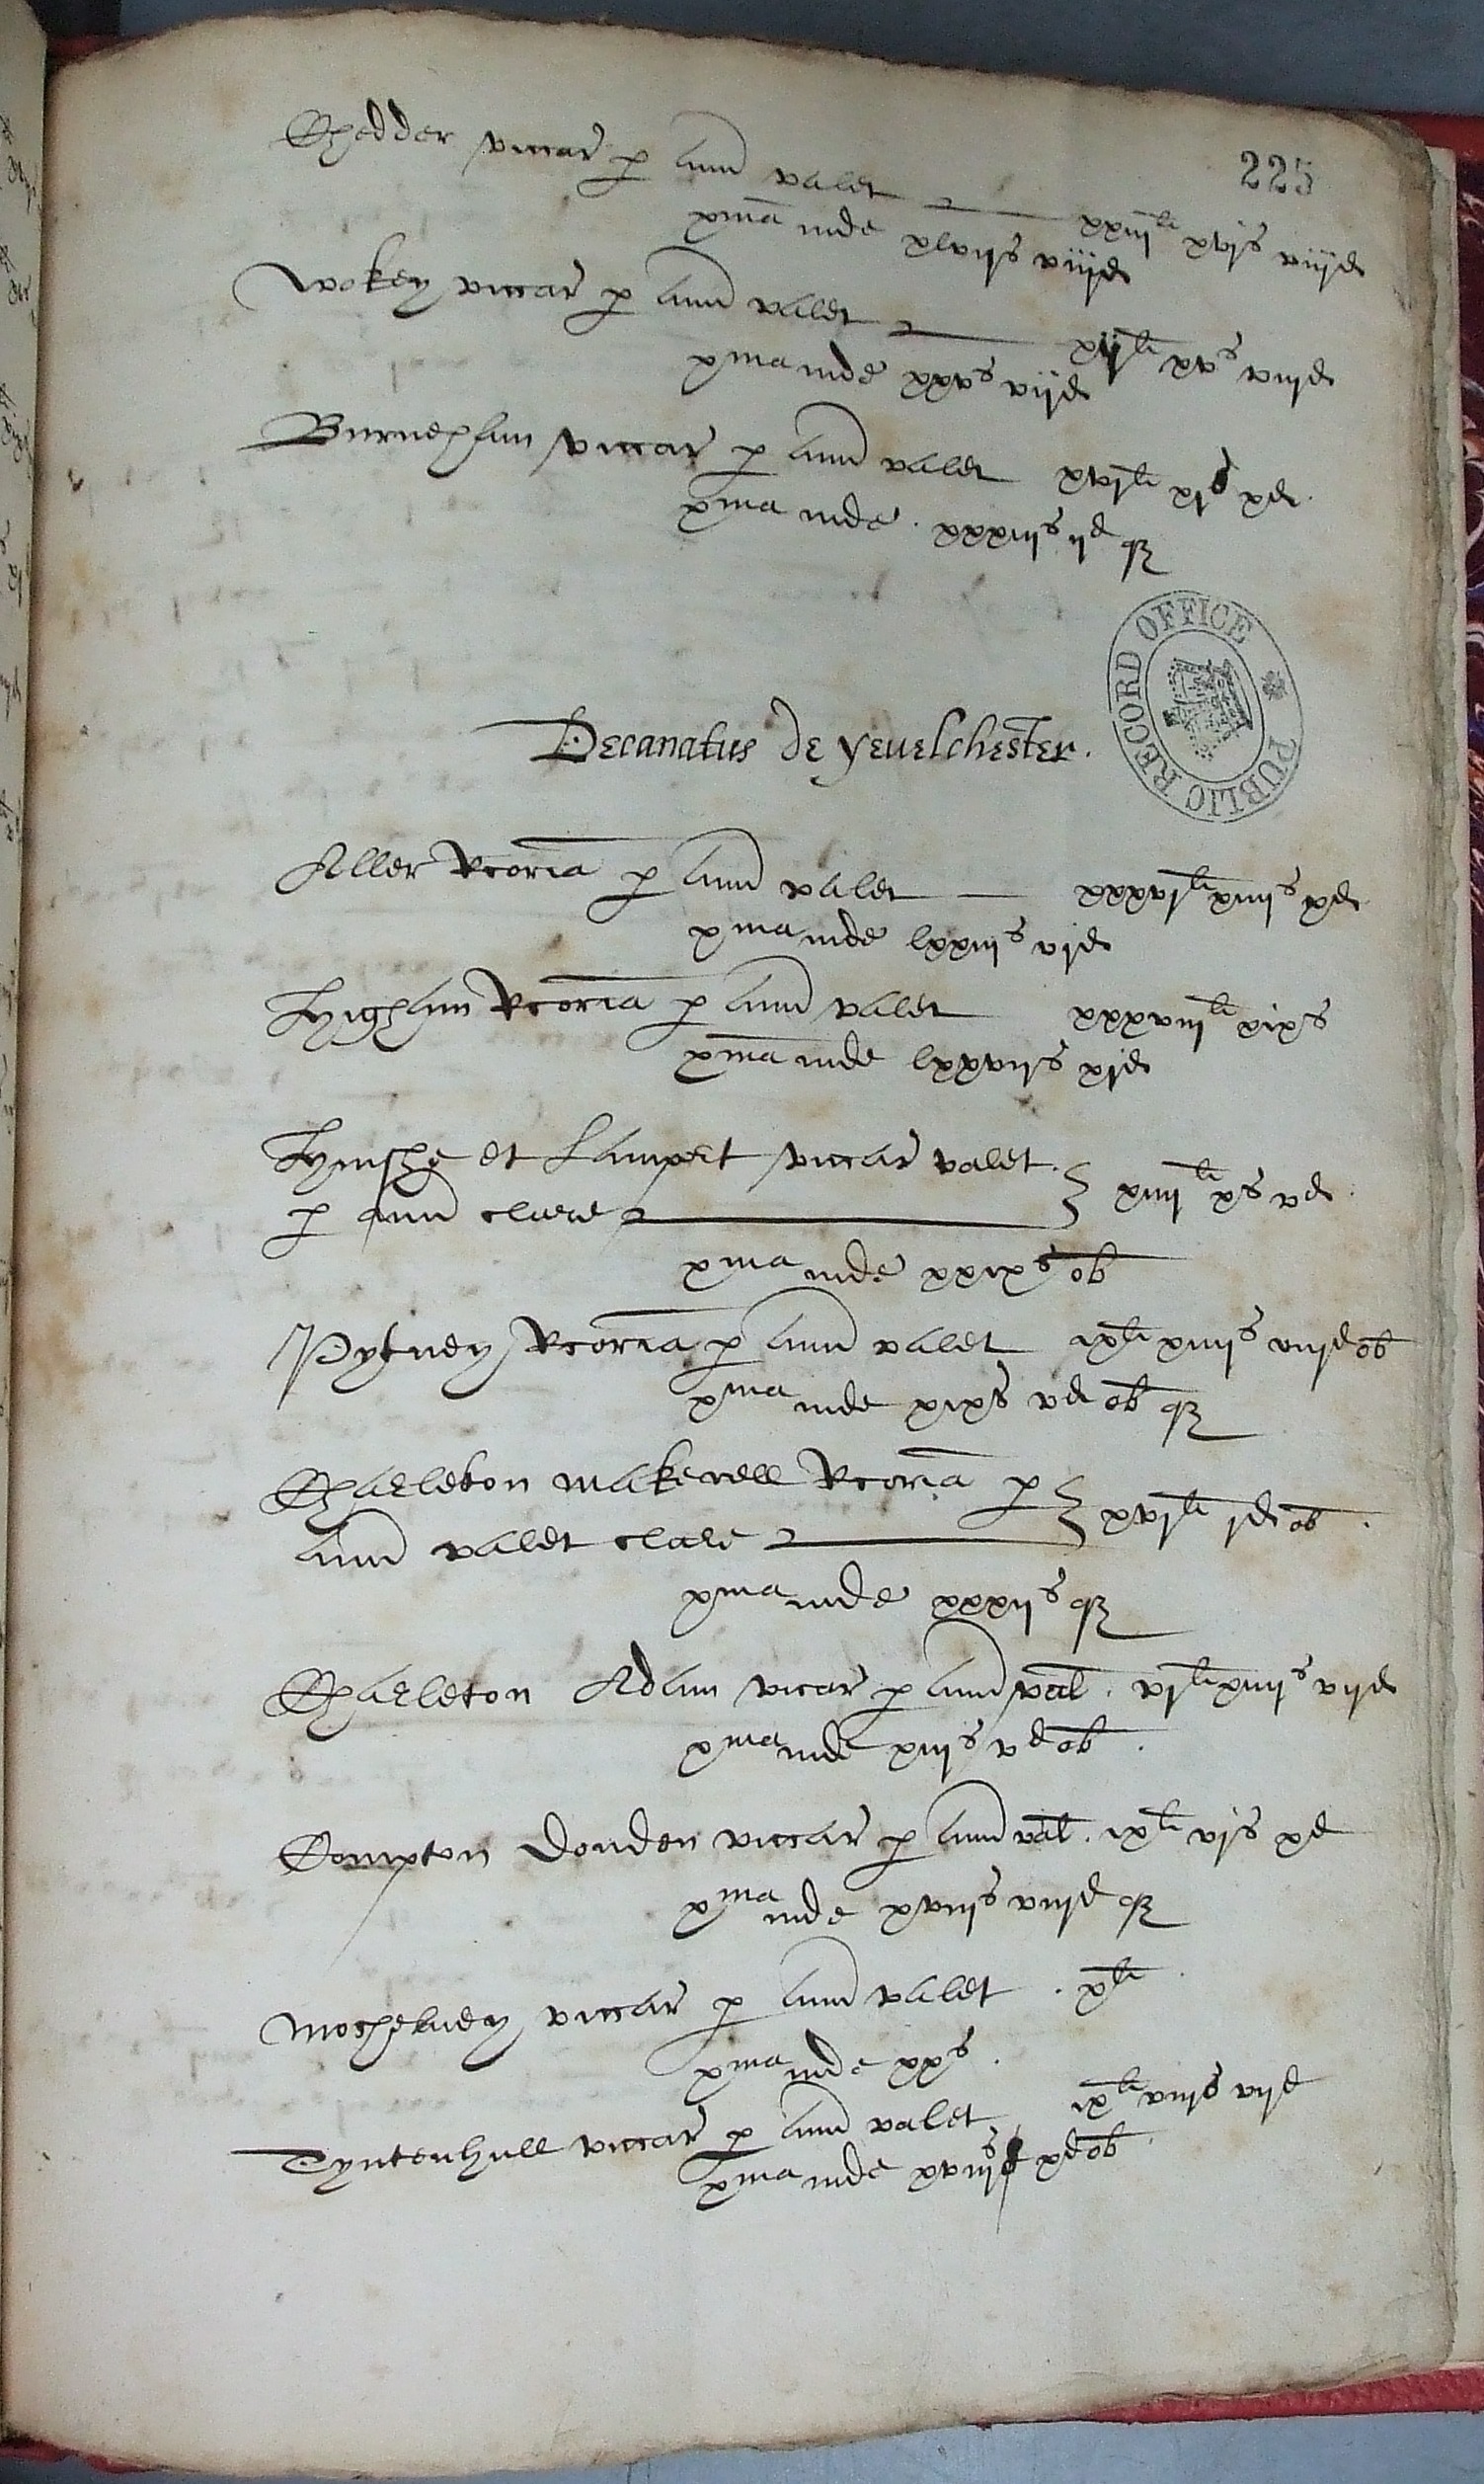 225
Chedder viccar p ann valet xxiijli xvjs viijd
xma inde xlvijs viijd
Wokey viccar p ann valet xijli xvs viijd
xma inde xxvs vijd
Burneham viccar p ann valet xvjli xjs xd
xma inde xxxiijs ijd q
PUBLIC RECORD OFFICE
Decanatus de yevelchester.
Aller Rcoria p ann valet xxxvjli xiiijs xd
xma inde lxxiijs vjd
Hygham Rcoria p ann valet xxxviijli xixs
xma inde lxxvijs xjd
Hynshe et Lamport viccar valet
p ann clare xiiijli xs vd
xma inde xxixs ob
Pytney Rcoria p ann valet ixli xiiijs viijd ob
xma inde xixs vd ob q
Charleton makerell Rcoria p
ann valet clare xvjli jd ob
xma inde xxxijs q
Charleton Adam vicar p ann val vjli xiiijs vijd
xma inde xiijs vd ob
Compton donden viccar p ann val ixli vjs xd
xma inde xviijs viijd q
Mochelney viccar p ann valet xli
xma inde xxs
Tyntenhull viccar p ann valet ixli viijs vijd
xma inde xviijs xd ob